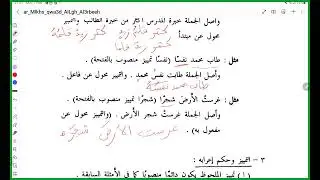 ar_Mlkhs_qwa3d_AlLgh_Al3rbeeh
وأصل الجملة خبرة المدرس أكثر من خبرة الطالب والتمييز
محول عن مبتدأ
مثل : طاب محمد نفسًا (نفسًا تمييز منصوب بالفتحة) .
وأصل الجملة طابت نفسُ محمدٍ . والتمييز محول عن فاعل .
مثل : غرستُ الأرضَ شجرًا (شجرًا تمييز منصوب بالفتحة) .
وأصل الجملة غرستُ شجر الأرض . (والتمييز محول عن
مفعول به) .
غرست الأرض شجرًا
٣ - التمييز وحكم إعرابه :
(١) تمييز الملحوظ يكون دائمًا منصوبًا كما في الأمثلة السابقة .